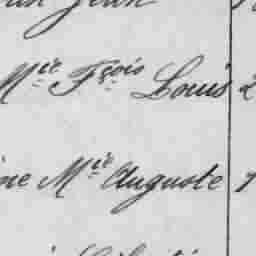 Jean
Mie Fçois Louis 2
ne Mie Auguste 1